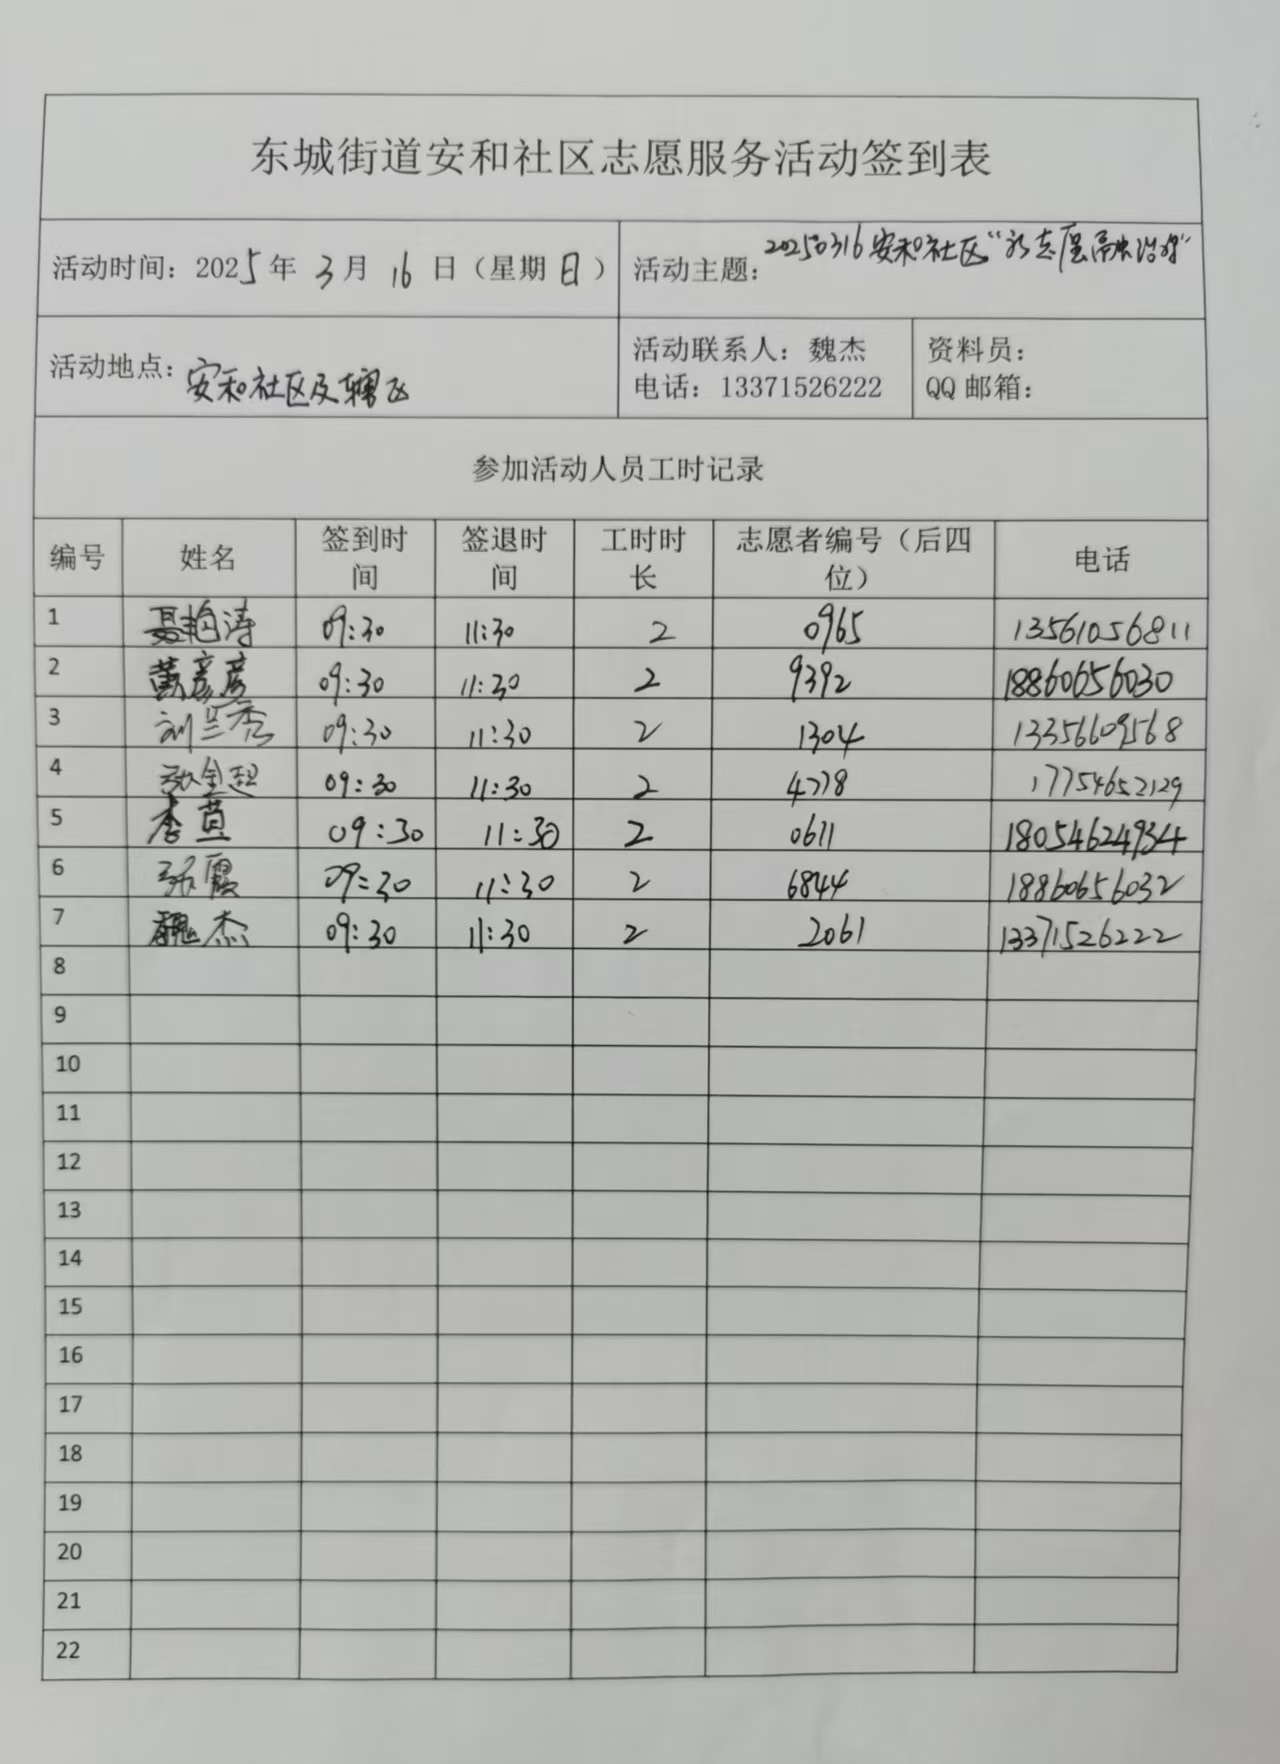 东城街道安和社区志愿服务活动签到表
活动时间：2025年 3月 16 日（星期日） 活动主题：20250316安和社区“
活动地点：安和社区及辖区
活动联系人：魏杰 资料员：
电话：13371526222 QQ邮箱：
参加活动人员工时记录
编号 姓名 签到时间 签退时间 工时时长 志愿者编号（后四位） 电话
1 聂艳涛 09:30 11:30 2 0965 13561056811
2 黄彦彦 09:30 11:30 2 9392 18860656030
3 刘兰秀 09:30 11:30 2 1304 13356609568
4 09:30 11:30 2 4778 17754652129
5 李苗 09:30 11:30 2 0611 18054624934
6 张霞 09:30 11:30 2 6844 18860656032
7 魏杰 09:30 11:30 2 2061 13371526222
8
9
10
11
12
13
14
15
16
17
18
19
20
21
22